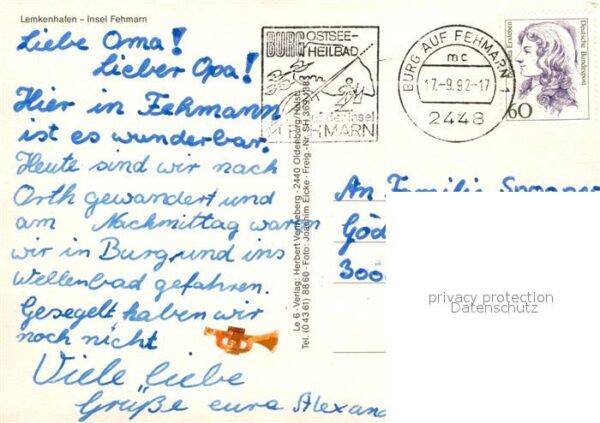 Lemkenhafen – Insel Fehmarn
Liebe Oma!
Lieber Opa!
Hier in Fehmann
ist es wunderbar.
Heute sind wir nach
Orth gewandert und
am Nachmittag waren
wir in Burg und ins
Wellenbad gefahren.
Gesegelt haben wir
noch nicht
Viele liebe
Grüße eura Alexan
BURG OSTSEE-
HEILBAD
auf der Insel
FEHMARN
BURG AUF FEHMARN 1
mc
17.-9.92-17
2448
Deutsche Bundespost
60
Le 6 · Verlag: Herbert Venneberg · 2440 Oldenburg/Holst.
Tel. (0 43 61) 88 60 · Foto: Joachim Eicke · Freig.-Nr. SH
An Familie
Göd
300
privacy protection
Datenschutz